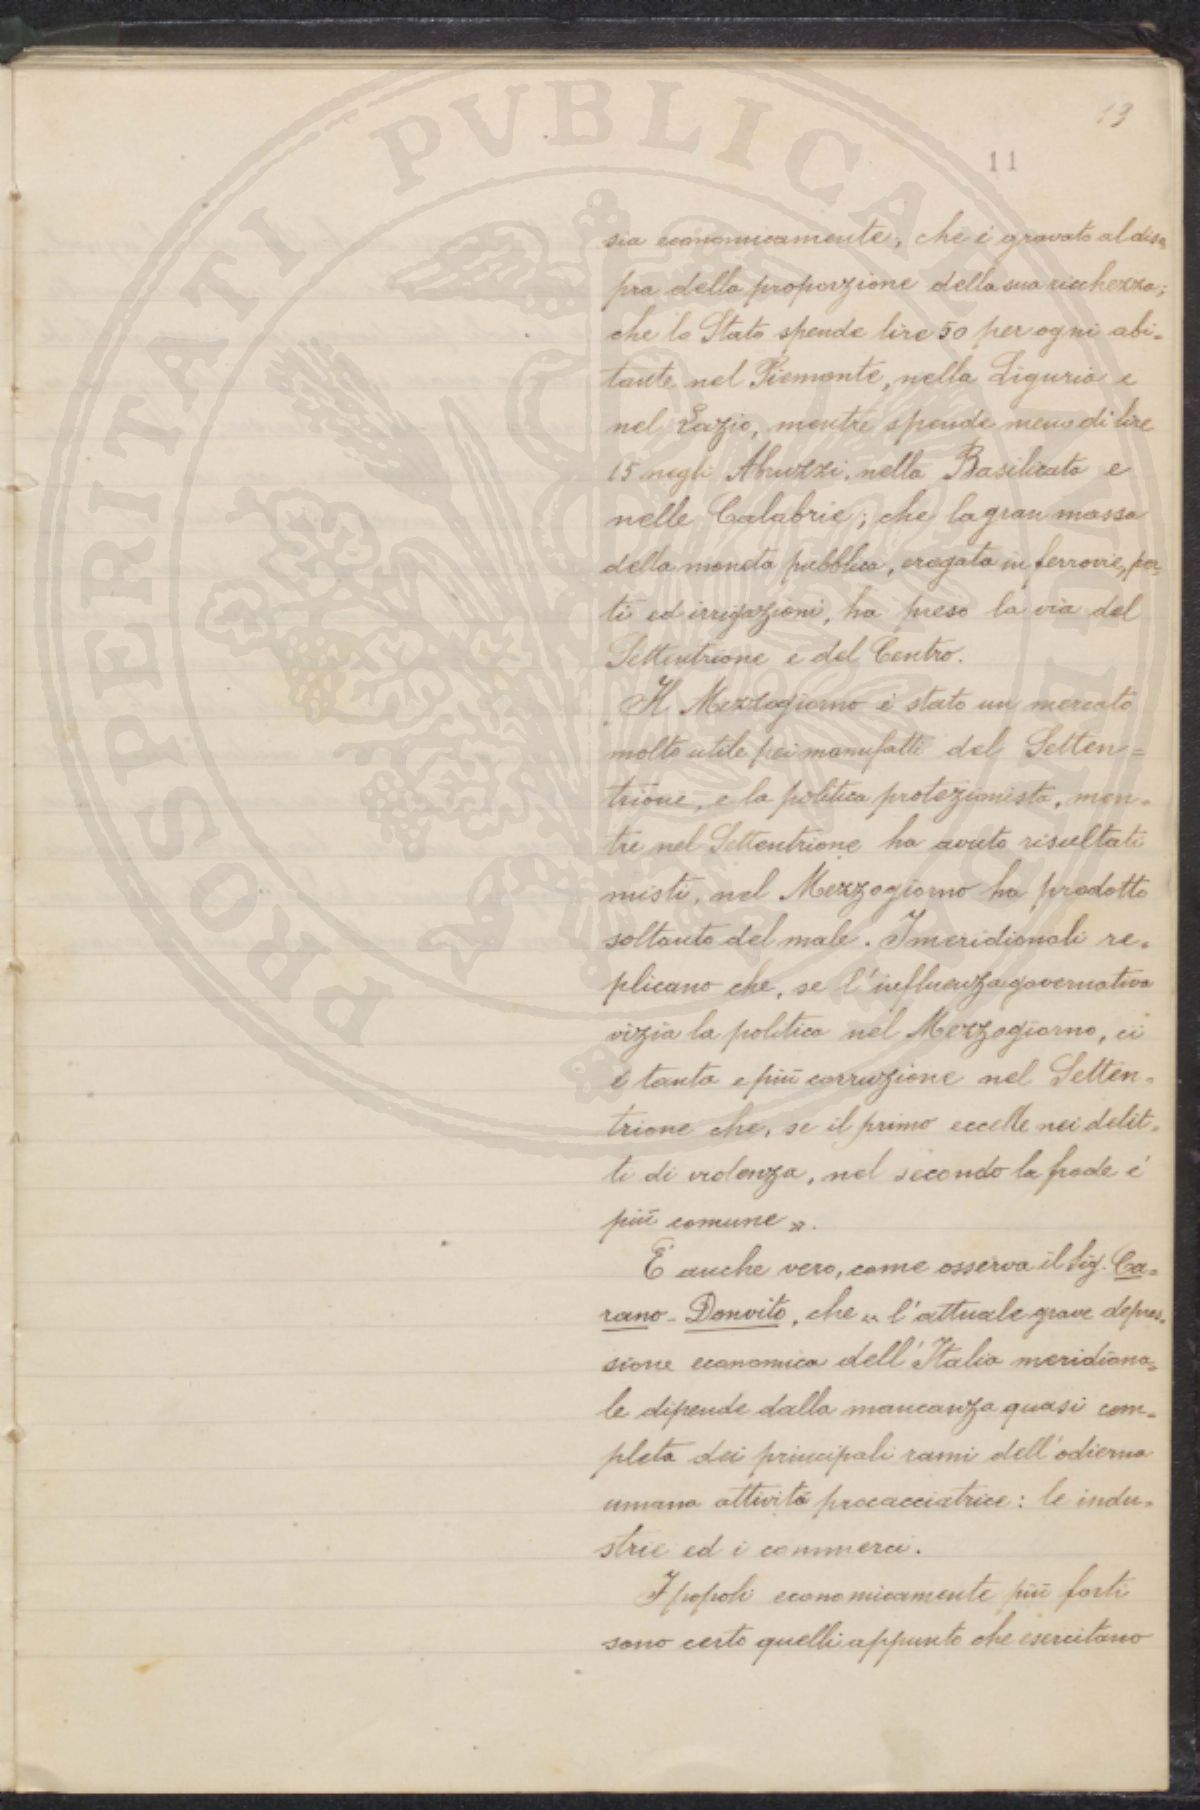 PROSPERITATI PUBLICAE AUGENDAE
13
11
sia economicamente, che è gravato al diso-
pra della proporzione della sua ricchezza;
che lo Stato spende lire 50 per ogni abi-
tante nel Piemonte, nella Liguria e
nel Lazio, mentre spende meno di lire
15 negli Abruzzi, nella Basilicata e
nelle Calabrie; che la gran massa
della moneta pubblica, erogata in ferrovie, por-
ti ed irrigazioni, ha preso la via del
Settentrione e del Centro.
Il Mezzogiorno è stato un mercato
molto utile pei manufatti del Setten=
trione, e la politica protezionista, men-
tre nel Settentrione ha avuto risultati
misti, nel Mezzogiorno ha prodotto
soltanto del male. I meridionali re-
plicano che, se l'influenza governativa
vizia la politica nel Mezzogiorno, ci
è tanta e più corruzione nel Setten-
trione che, se il primo eccelle nei delit-
ti di violenza, nel secondo la frode è
più comune».
È anche vero, come osserva il Sig. Ca-
rano-Donvito, che «l'attuale grave depres-
sione economica dell'Italia meridiona-
le dipende dalla mancanza quasi com-
pleta dei principali rami dell'odierna
umana attività procacciatrice: le indu-
strie ed i commerci.
I popoli economicamente più forti
sono certo quelli appunto che esercitano